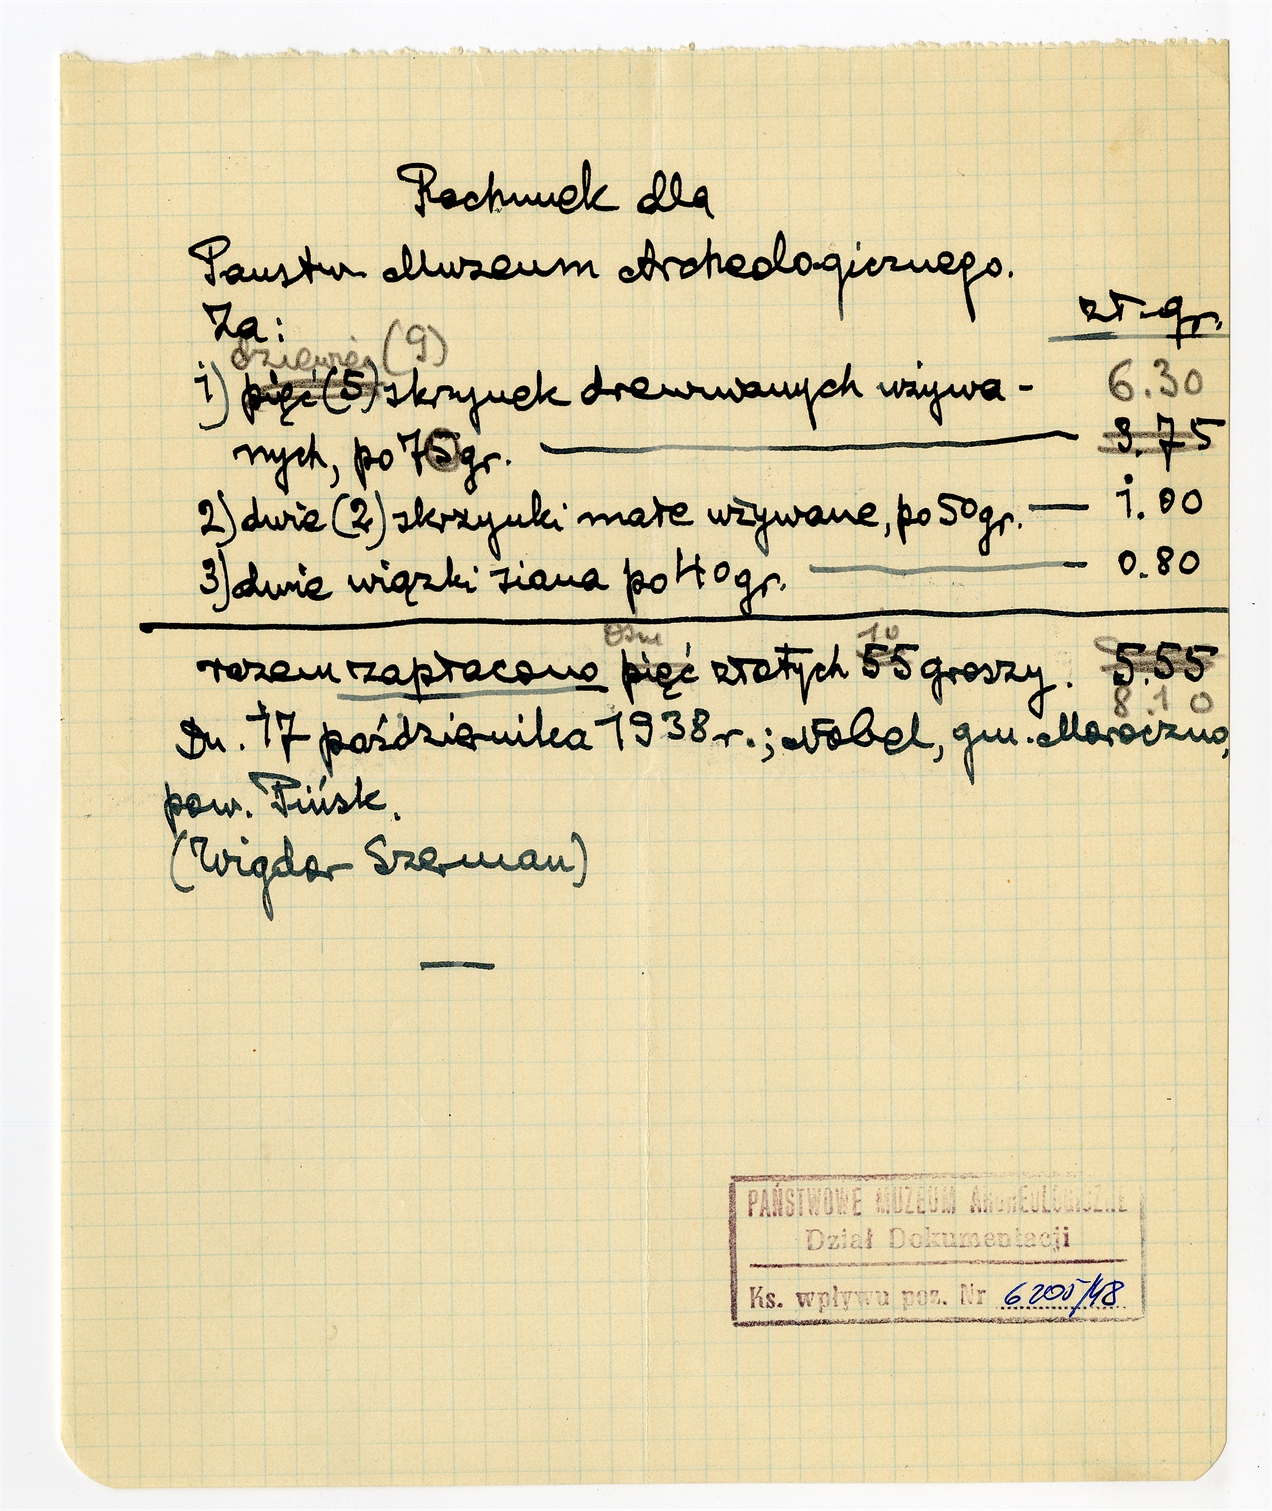 Rachunek dla
Państw. Muzeum Archeologicznego.
Za:
zł. gr.
dziewięć (9)
1) pięć (5) skrzynek drewnianych używa-
6.30
nych, po 75 gr. — 3.75
2) dwie (2) skrzynki małe używane, po 50 gr. — 1.00
3) dwie wiązki siana po 40 gr. — 0.80
osm 10
razem zapłacono pięć złotych 55 groszy. 5.55
8.10
Dn. 17 października 1938 r.; Nobel, gm. Moroczno,
pow. Pińsk.
(Wigdor Szerman)
—
PAŃSTWOWE MUZEUM ARCHEOLOGICZNE
Dział Dokumentacji
Ks. wpływu poz. Nr 6205/48